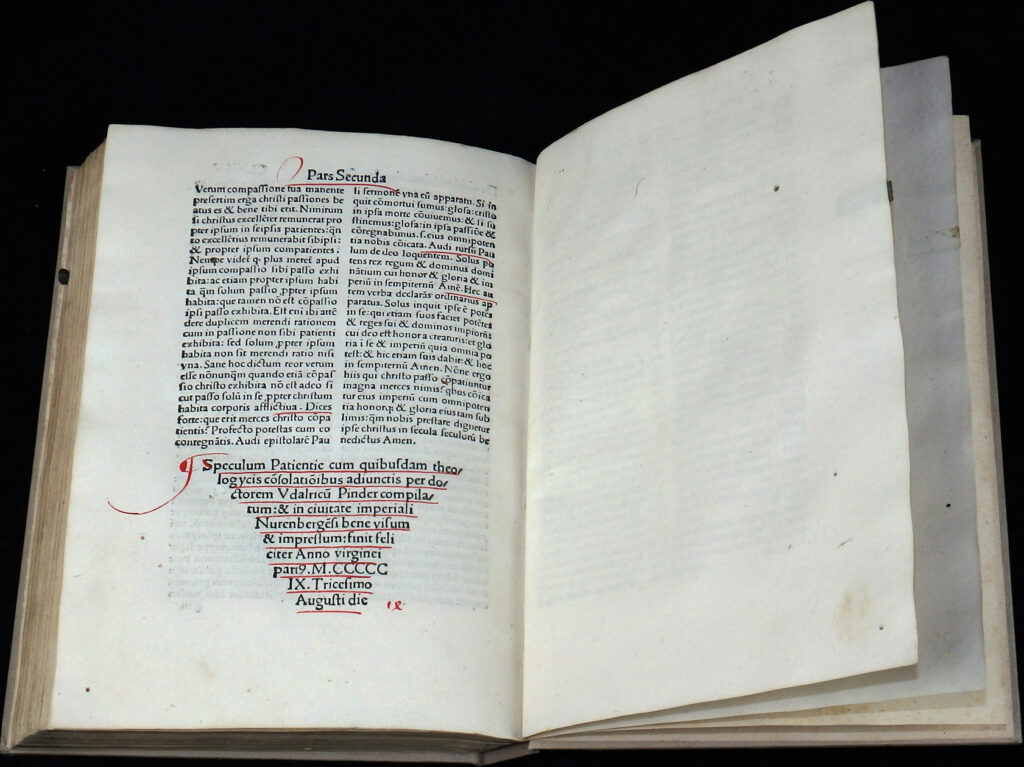 Pars Secunda
Verum compassione tua manente
presertim erga christi passiones be
atus es & bene tibi erit. Nimirum
si christus excellēter remunerat pro
pter ipsum in seipsis patientes: qn̄
to excellentius remunerabit sibipsi:
& propter ipsum compatientes.
Nempe videt̃ ꝙ plus meret̃ apud
ipsum compassio sibi passo exhi
bita: ac etiam propter ipsum habi
ta q̄m solum passio ꝓpter ipsum
habita: que tamen nō est cōpassio
ipsi passo exhibita. Est eni ibi attē
dere duplicem merendi rationem
cum in passione non sibi patienti
exhibita: sed solum ꝓpter ipsum
habita non sit merendi ratio nisi
vna. Sane hoc dictum reor verum
esse nōnunq̄m quando etiā cōpas
sio christo exhibita nō est adeo si
cut passo solū in se ꝓpter christum
habita corporis afflictiua. Dices
forte: que erit merces christo cōpa
tientis? Profecto potestas cum eo
conregnātis. Audi epistolarē Pau
li sermonē vna cū apparatu. Si in
quit cōmortui sumus: glosa: cristo
in ipsa morte cōuiuemus: & si su
stinemus: glosa: in ipsa passiōe &
cōregnabimus. s. eius omnipoten
tia nobis cōicata. Audi rursū Pau
lum de deo loquentem. Solus po
tens rex regum & dominus domi
nātium cui honor & gloria & im
periū in sempiternū. Amē. Hec au
tem verba declarās ordinarius ap
paratus. Solus inquit ipse ē potēs
in se: qui etiam suos faciet potētes
& reges sui & dominos impiorū:
cui deo est honor a creaturis: et glo
ria i se & imperiū quia omnia po
test: & hic etiam suis dabit̃: & hoc
in sempiternū Amen. Nōne ergo
hiis qui christo passo cōpatiuntur
magna merces nimis? qbus cōica
tur eius imperium cum omnipoten
tia honorq; & gloria eius tam sub
limis: q̄m nobis prestare dignetur
ipse christus in secula seculorū be
nedictus Amen.
Speculum Patientie cum quibusdam theo/
logycis cōsolatiōibus adiunctis per do/
ctorem Vdalricū Pinder compila/
tum: & in ciuitate imperiali
Nurenbergēsi bene visum
& impressum: finit feli
citer Anno virginei
partꝰ. M.CCCCC
IX. Tricesimo
Augusti die